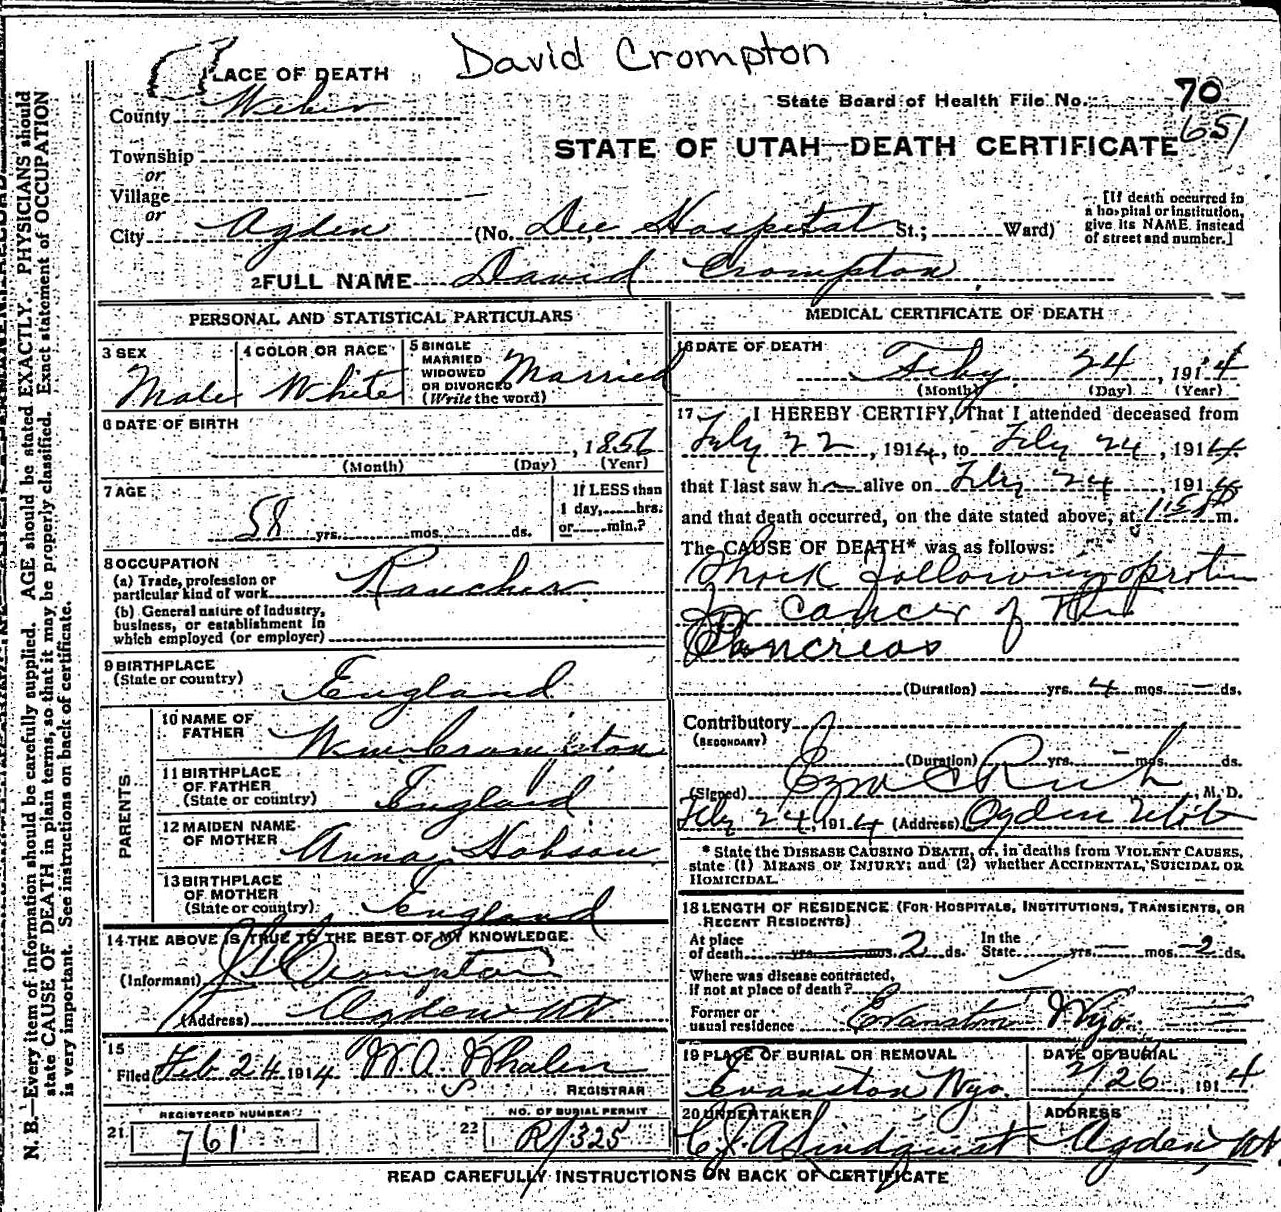 David Crompton
PLACE OF DEATH
County Weber
State Board of Health File No. 70
651
STATE OF UTAH—DEATH CERTIFICATE
Township
or
Village
or
City Ogden (No. Dee Hospital St.; Ward)
[If death occurred in
a hospital or institution,
give its NAME instead
of street and number.]
2 FULL NAME David Crompton
PERSONAL AND STATISTICAL PARTICULARS
3 SEX
Male
4 COLOR OR RACE
White
5 SINGLE
MARRIED
WIDOWED
OR DIVORCED
(Write the word)
Married
6 DATE OF BIRTH
, 1856
(Month) (Day) (Year)
7 AGE
58 yrs. mos. ds.
If LESS than
1 day, hrs.
or min.?
8 OCCUPATION
(a) Trade, profession or
particular kind of work Rancher
(b) General nature of Industry,
business, or establishment in
which employed (or employer)
9 BIRTHPLACE
(State or country)
England
PARENTS
10 NAME OF
FATHER
Wm Crompton
11 BIRTHPLACE
OF FATHER
(State or country) England
12 MAIDEN NAME
OF MOTHER Anna Hobson
13 BIRTHPLACE
OF MOTHER
(State or country) England
14 THE ABOVE IS TRUE TO THE BEST OF MY KNOWLEDGE
(Informant) Crompton
(Address) Ogden Ut
15
Filed Feb 24 1914 W A Whalen
REGISTRAR
REGISTERED NUMBER
21 761
NO. OF BURIAL PERMIT
22 R/325
MEDICAL CERTIFICATE OF DEATH
16 DATE OF DEATH
Feby 24, 1914
(Month) (Day) (Year)
17 I HEREBY CERTIFY, That I attended deceased from
Feby 22, 1914, to Feby 24, 1914
that I last saw h alive on Feby 24, 1914
and that death occurred, on the date stated above, at m.
The CAUSE OF DEATH* was as follows:
Shock following
for cancer of the
Pancreas
(Duration) yrs. 4 mos. – ds.
Contributory
(SECONDARY)
(Duration) yrs. mos. ds.
(Signed) Ezra C Rich, M. D.
Feby 24, 1914 (Address) Ogden Utah
* State the DISEASE CAUSING DEATH, or, in deaths from VIOLENT CAUSES,
state (1) MEANS OF INJURY; and (2) whether ACCIDENTAL, SUICIDAL OR
HOMICIDAL.
18 LENGTH OF RESIDENCE (FOR HOSPITALS, INSTITUTIONS, TRANSIENTS, OR
RECENT RESIDENTS)
At place
of death yrs. mos. 2 ds.
In the
State yrs. mos. 2 ds.
Where was disease contracted,
if not at place of death?
Former or
usual residence Evanston Wyo.
19 PLACE OF BURIAL OR REMOVAL
Evanston Wyo.
DATE OF BURIAL
2/26, 1914
20 UNDERTAKER
C. J. A. Lindquist
ADDRESS
Ogden, Ut
READ CAREFULLY INSTRUCTIONS ON BACK OF CERTIFICATE
N. B.—Every item of information should be carefully supplied. AGE should be stated EXACTLY. PHYSICIANS should
state CAUSE OF DEATH in plain terms, so that it may be properly classified. Exact statement of OCCUPATION
is very important. See instructions on back of certificate.